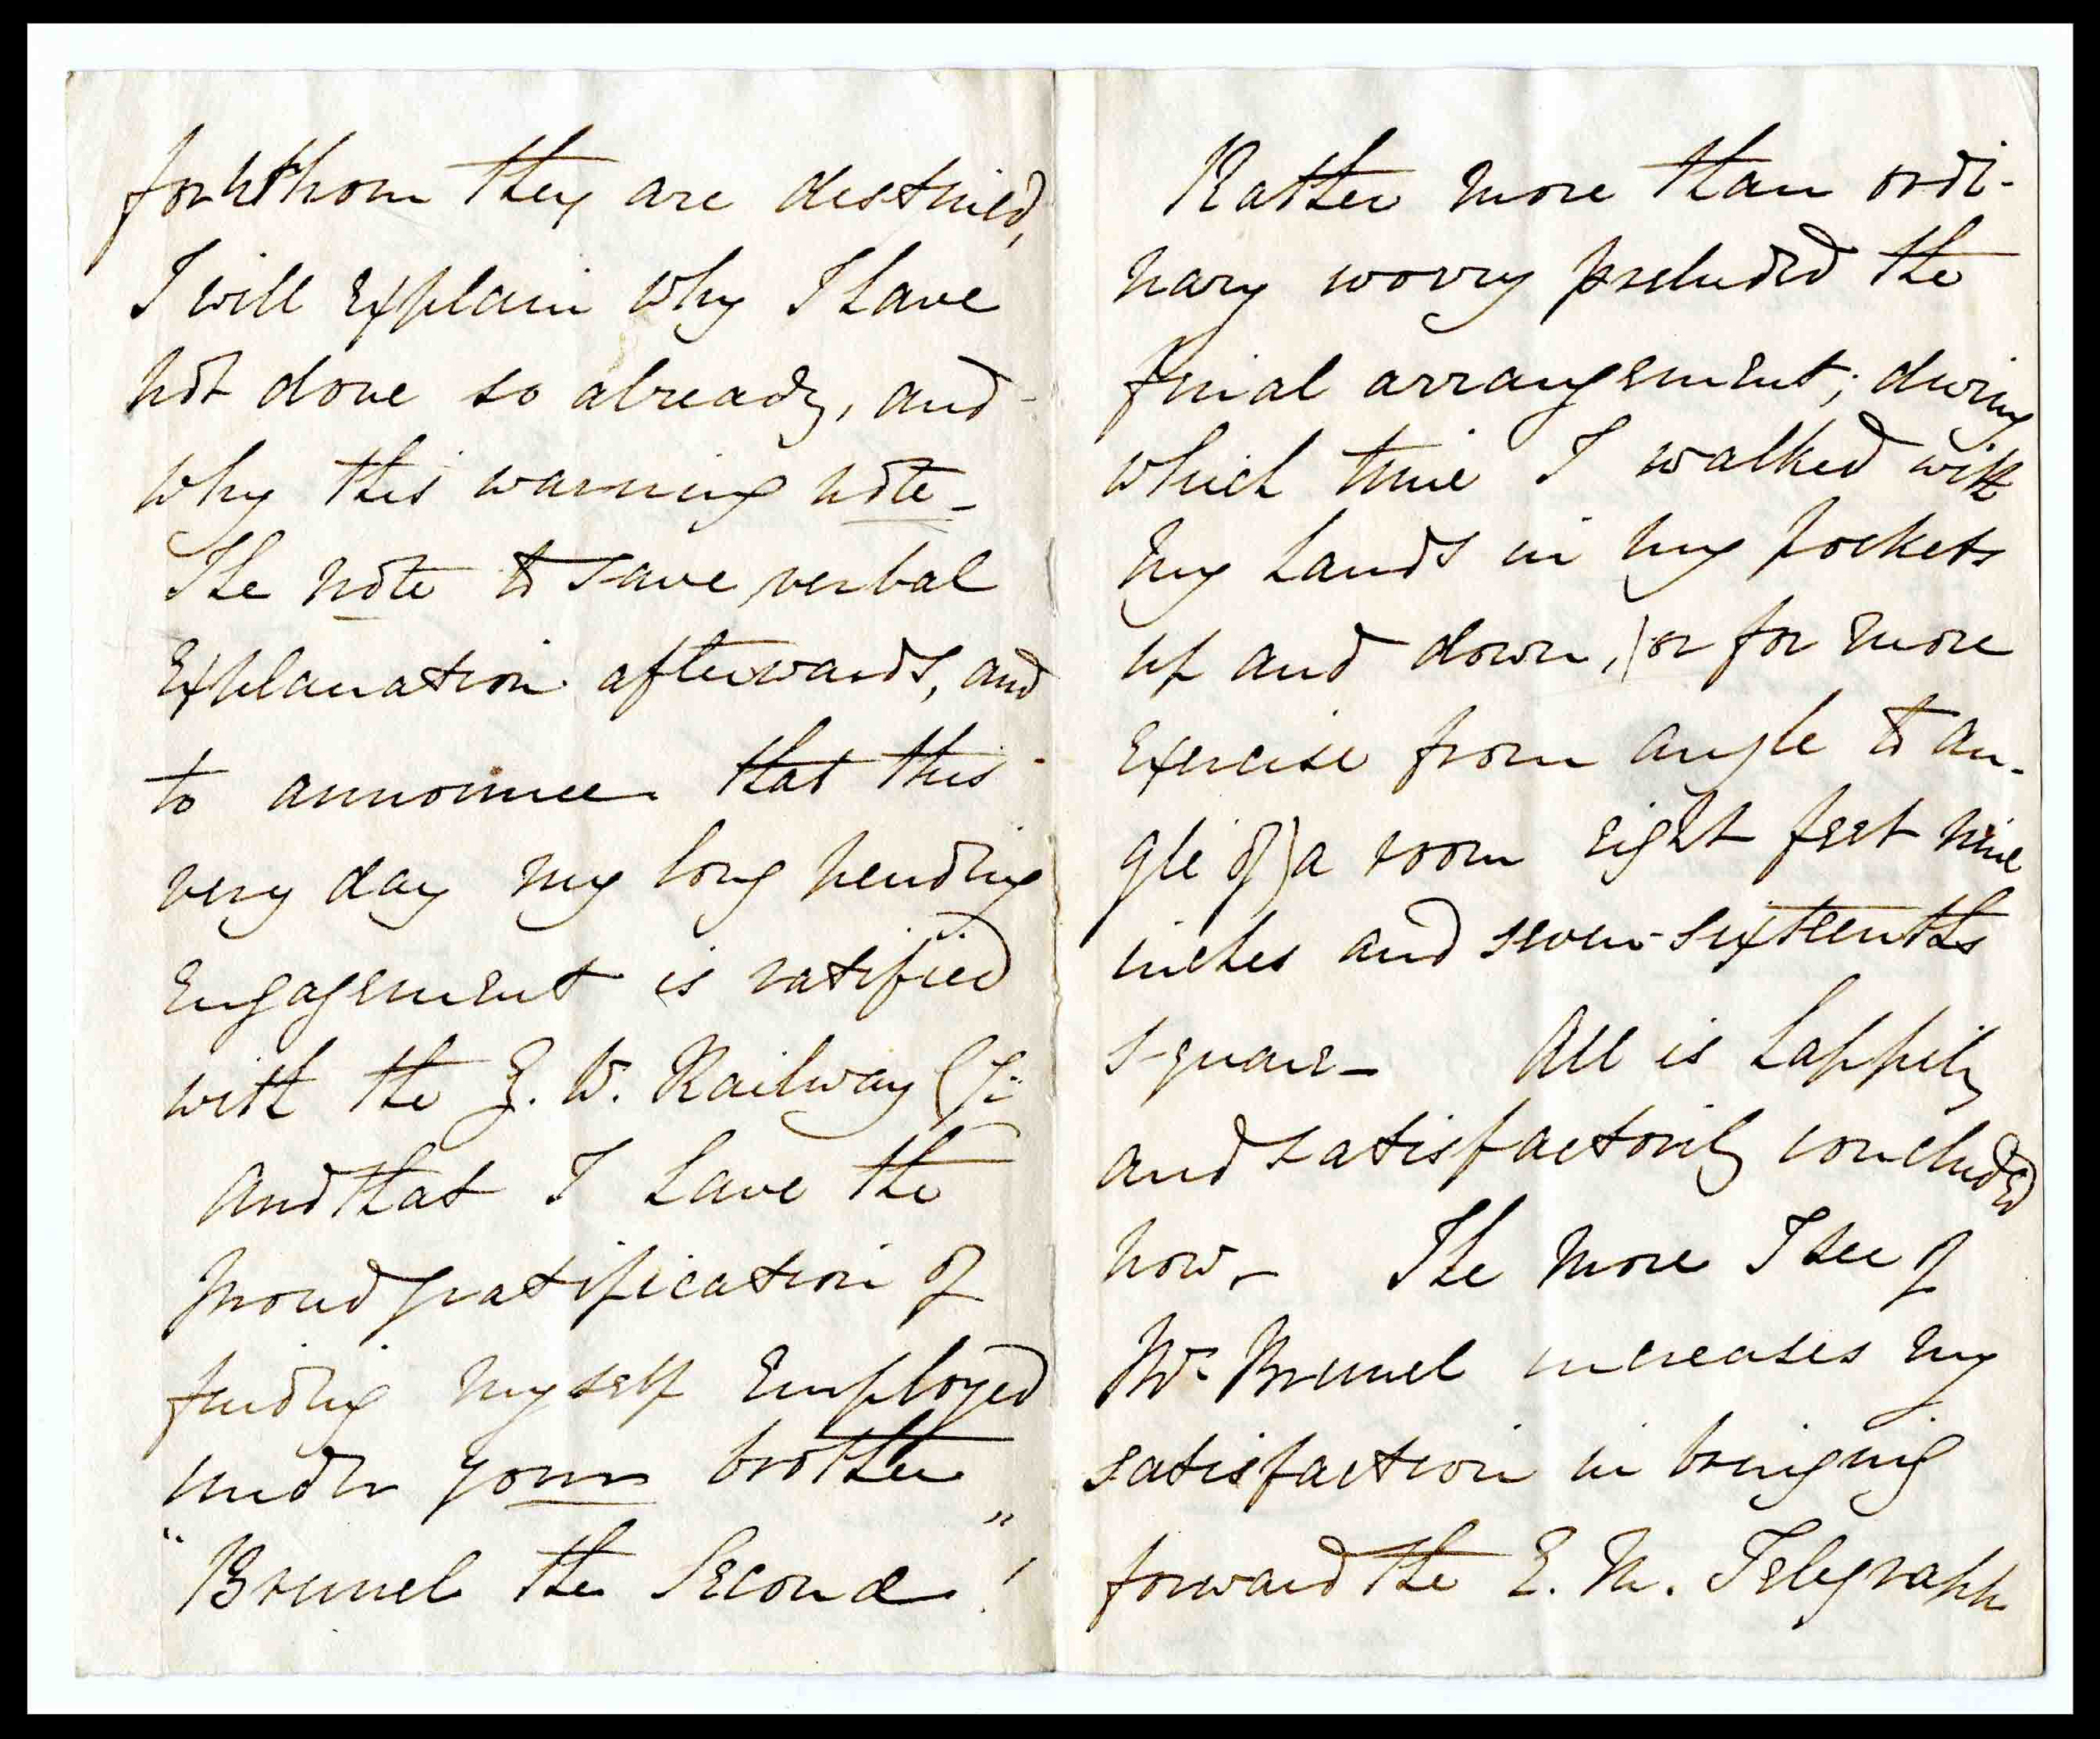 for whom they are destined,
I will explain why I have
not done so already, and
why this warning note –
The note to save verbal
explanation afterwards, and
to announce that this
very day my long pending
engagement is ratified
with the G. W. Railway Co:
and that I have the
proud gratification of
finding myself employed
under your brother
"Brunel the Second"!
Rather more than ordi-
nary worry preluded the
final arrangement; during
which time I walked with
my hands in my pockets
up and down, (or for more
exercise from angle to an-
gle of) a room eight feet nine
inches and seven-sixteenths
square – All is happily
and satisfactorily concluded
now – The more I see of
Mr. Brunel increases my
satisfaction in bringing
forward the E. M. Telegraph